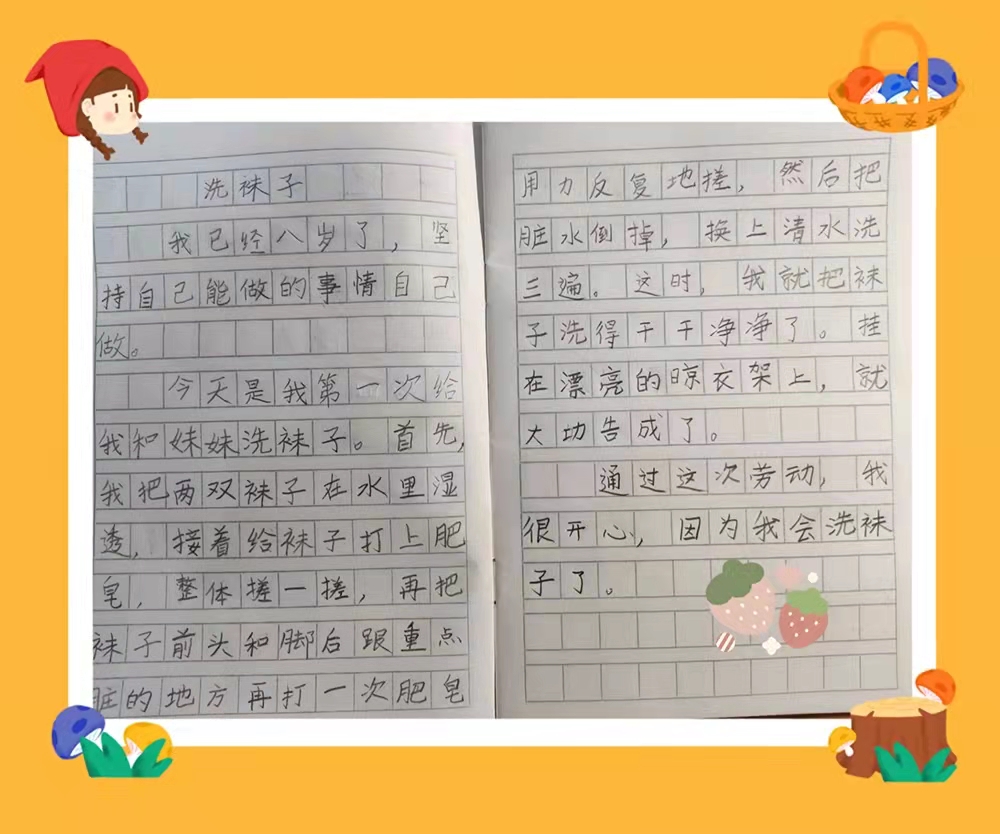 洗袜子
我已经八岁了，坚
持自己能做的事情自己
做。
今天是我第一次给
我和妹妹洗袜子。首先，
我把两双袜子在水里湿
透，接着给袜子打上肥
皂，整体搓一搓，再把
袜子前头和脚后跟重点
脏的地方再打一次肥皂
用力反复地搓，然后把
脏水倒掉，换上清水洗
三遍。这时，我就把袜
子洗得干干净净了。挂
在漂亮的晾衣架上，就
大功告成了。
通过这次劳动，我
很开心，因为我会洗袜
子了。